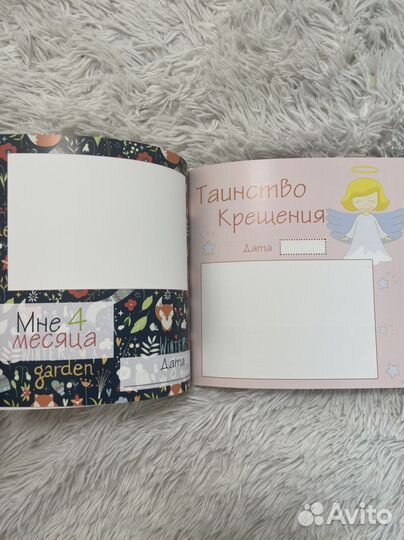 Мне 4
месяца
garden
Дата
Таинство
Крещения
Дата
Avito